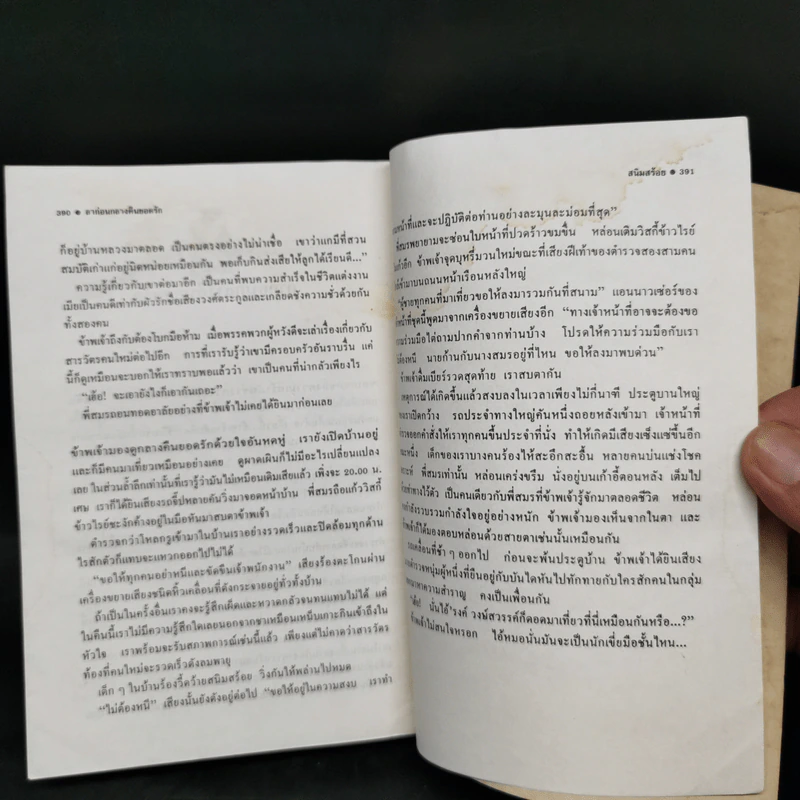 390 ● ลาก่อนกลางคืนยอดรัก
ก็อยู่บ้านหลวงมาตลอด เป็นคนตรงอย่างไม่น่าเชื่อ เขาว่าแกมีที่สวน
สมบัติเก่าแก่อยู่นิดหน่อยเหมือนกัน พอเก็บกินส่งเสียให้ลูกได้เรียนดี...”
ความรู้เกี่ยวกับเขาต่อมาอีก เป็นคนที่พบความสำเร็จในชีวิตแต่งงาน
เมียเป็นคนดีเท่ากับผัวรักชื่อเสียงวงศ์ตระกูลและเกลียดชังความชั่วด้วยกัน
ทั้งสองคน
ข้าพเจ้าถึงกับต้องโบกมือห้าม เมื่อพรรคพวกผู้หวังดีจะเล่าเรื่องเกี่ยวกับ
สารวัตรคนใหม่ต่อไปอีก การที่เรารับรู้ว่าเขามีครอบครัวอันราบรื่น แค่
นี้ก็ดูเหมือนจะบอกให้เราทราบพอแล้วว่า เขาเป็นคนที่น่ากลัวเพียงไร
“เฮ้อ! จะเอายังไงก็เอากันเถอะ”
พี่สมรถอนทอดอาลัยอย่างที่ข้าพเจ้าไม่เคยได้ยินมาก่อนเลย
ข้าพเจ้ามองดูกลางคืนยอดรักด้วยใจอันหดหู่ เรายังเปิดบ้านอยู่
และก็มีคนมาเที่ยวเหมือนอย่างเคย ดูผาดเผินก็ไม่มีอะไรเปลี่ยนแปลง
เลย ในส่วนล้ำลึกเท่านั้นที่เรารู้ว่ามันไม่เหมือนเดิมเสียแล้ว เพิ่งจะ 20.00 น.
เศษ เราก็ได้ยินเสียงรถจี๊ปหลายคันวิ่งมาจอดหน้าบ้าน พี่สมรถือแก้ววิสกี้
ข้าวไรย์ชะงักค้างอยู่ในมือหันมาสบตาข้าพเจ้า
ตำรวจกว่าโหลกรูเข้ามาในบ้านเราอย่างรวดเร็วและปิดล้อมทุกด้าน
ไรสักตัวก็แทบจะแหวกออกไปไม่ได้
“ขอให้ทุกคนอย่าหนีและขัดขืนเจ้าพนักงาน” เสียงร้องตะโกนผ่าน
เครื่องขยายเสียงชนิดหิ้วเคลื่อนที่ดังกระจายอยู่ทั่วทั้งบ้าน
ถ้าเป็นในครั้งอื่นเราคงจะรู้สึกเผ็ดและหวาดกลัวจนทนแทบไม่ได้ แต่
ในคืนนี้เราไม่มีความรู้สึกใดเลยนอกจากชาเหมือนเหน็บเกาะกินเข้าถึงใน
หัวใจ เราพร้อมจะรับสภาพการณ์เช่นนี้แล้ว เพียงแต่ไม่คาดว่าสารวัตร
ท้องที่คนใหม่จะรวดเร็วดังลมพายุ
เด็ก ๆ ในบ้านร้องวี้ดว้ายสนิมสร้อย วิ่งกันให้พล่านไปหมด
“ไม่ต้องหนี” เสียงนั้นยังดังอยู่ต่อไป “ขอให้อยู่ในความสงบ เราทำ
สนิมสร้อย ● 391
ตามหน้าที่และจะปฏิบัติต่อท่านอย่างละมุนละม่อมที่สุด”
พี่สมรพยายามจะซ่อนใบหน้าที่ปวดร้าวขมขื่น หล่อนเติมวิสกี้ข้าวไรย์
แก้วอีก ข้าพเจ้าจุดบุหรี่มวนใหม่ขณะที่เสียงฝีเท้าของตำรวจสองสามคน
เข้ามาบนถนนหน้าเรือนหลังใหญ่
“ผู้ชายทุกคนที่มาเที่ยวขอให้ลงมารวมกันที่สนาม” แอนนาวเซอร์ของ
หน้าที่ชุดนี้พูดมาจากเครื่องขยายเสียงอีก “ทางเจ้าหน้าที่อาจจะต้องขอ
ความร่วมมือไต่ถามปากคำจากท่านบ้าง โปรดให้ความร่วมมือกับเรา
ต้องหนี นายก้านกับนางสมรอยู่ที่ไหน ขอให้ลงมาพบด่วน”
ข้าพเจ้าดื่มเบียร์รวดสุดท้าย เราสบตากัน
เหตุการณ์ได้เกิดขึ้นแล้วสงบลงในเวลาเพียงไม่กี่นาที ประตูบานใหญ่
ของเราเปิดกว้าง รถประจำทางใหญ่คันหนึ่งถอยหลังเข้ามา เจ้าหน้าที่
ตำรวจออกคำสั่งให้เราทุกคนขึ้นประจำที่นั่ง ทำให้เกิดมีเสียงเซ็งแซ่ขึ้นอีก
ขณะหนึ่ง เด็กของเราบางคนร้องไห้สะอึกสะอื้น หลายคนบ่นแช่งโชค
เคราะห์ พี่สมรเท่านั้น หล่อนเคร่งขรึม นั่งอยู่บนเก้าอี้ตอนหลัง เต็มไป
ด้วยท่าทางไว้ตัว เป็นคนเดียวกับพี่สมรที่ข้าพเจ้ารู้จักมาตลอดชีวิต หล่อน
กำลังรวบรวมกำลังใจอยู่อย่างหนัก ข้าพเจ้ามองเห็นจากในตา และ
ข้าพเจ้าก็ได้มองตอบหล่อนด้วยสายตาเช่นนั้นเหมือนกัน
รถเคลื่อนที่ช้า ๆ ออกไป ก่อนจะพ้นประตูบ้าน ข้าพเจ้าได้ยินเสียง
ตำรวจหนุ่มผู้หนึ่งที่ยืนอยู่กับบันไดหันไปทักทายกับใครสักคนในกลุ่ม
มาหาความสำราญ คงเป็นเพื่อนกัน
“เฮ้ย! นั่นไอ้'รงค์ วงษ์สวรรค์ก็ดอดมาเที่ยวที่นี่เหมือนกันหรือ...?”
ข้าพเจ้าไม่สนใจหรอก ไอ้หมอนั่นมันจะเป็นนักเขี่ยมือชั้นไหน...